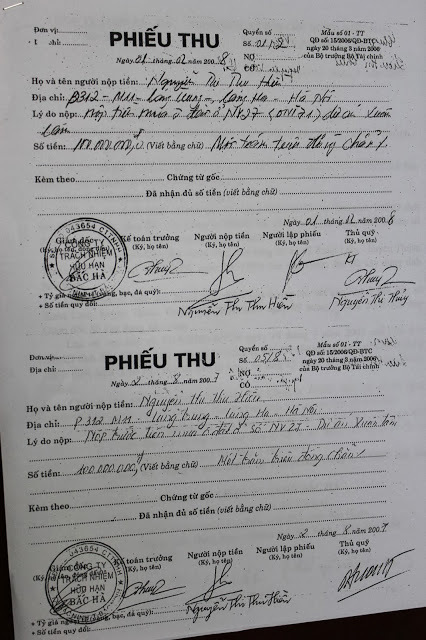 Đơn vị:
PHIẾU THU
Quyển số:
Mẫu số 01 - TT
QĐ số 15/2006/QĐ-BTC
ngày 20 tháng 3 năm 2006
của Bộ trưởng Bộ Tài chính
Địa chỉ:
Số:
Ngày 01 tháng 02 năm 2008
NỢ
CÓ
Họ và tên người nộp tiền: Nguyễn Thị Thu Hiền
Địa chỉ: P312 - M11 - Láng Trung - Láng Hạ - Hà Nội
Lý do nộp: Nộp tiền mua ô đất ở NV27 dự án Xuân
Lâm
Số tiền: 100.000.000đ (Viết bằng chữ) Một trăm triệu đồng chẵn
Kèm theo Chứng từ gốc
Đã nhận đủ số tiền (viết bằng chữ)
Ngày 01 tháng 02 năm 2008
Giám đốc
Kế toán trưởng
Người nộp tiền
Người lập phiếu
Thủ quỹ
(Ký, họ tên, đóng dấu)
(Ký, họ tên)
(Ký, họ tên)
(Ký, họ tên)
(Ký, họ tên)
043654
CÔNG TY
TRÁCH NHIỆM
HỮU HẠN
BẮC HÀ
Nguyễn Thị Thu Hiền
Nguyễn Thị Thủy
+ Tỷ giá ngoại tệ (vàng, bạc, đá quý):
+ Số tiền quy đổi:
Đơn vị:
PHIẾU THU
Quyển số:
Mẫu số 01 - TT
QĐ số 15/2006/QĐ-BTC
ngày 20 tháng 3 năm 2006
của Bộ trưởng Bộ Tài chính
Địa chỉ:
Số: 05/8
Ngày 2 tháng 8 năm 2007
NỢ
CÓ
Họ và tên người nộp tiền: Nguyễn Thị Thu Hiền
Địa chỉ: P 312 M11 - Láng Trung - Láng Hạ - Hà Nội
Lý do nộp: Nộp trước tiền mua ô đất ở số NV 27 - Dự án Xuân Lâm
Số tiền: 100.000.000đ (Viết bằng chữ) Một trăm triệu đồng chẵn
Kèm theo Chứng từ gốc
Đã nhận đủ số tiền (viết bằng chữ)
Ngày 2 tháng 8 năm 2007
Giám đốc
Kế toán trưởng
Người nộp tiền
Người lập phiếu
Thủ quỹ
(Ký, họ tên)
(Ký, họ tên)
(Ký, họ tên)
(Ký, họ tên)
043654
CÔNG TY
TRÁCH NHIỆM
HỮU HẠN
BẮC HÀ
Nguyễn Thị Thu Hiền
+ Tỷ giá ngoại tệ (vàng, bạc, đá quý):
+ Số tiền quy đổi: